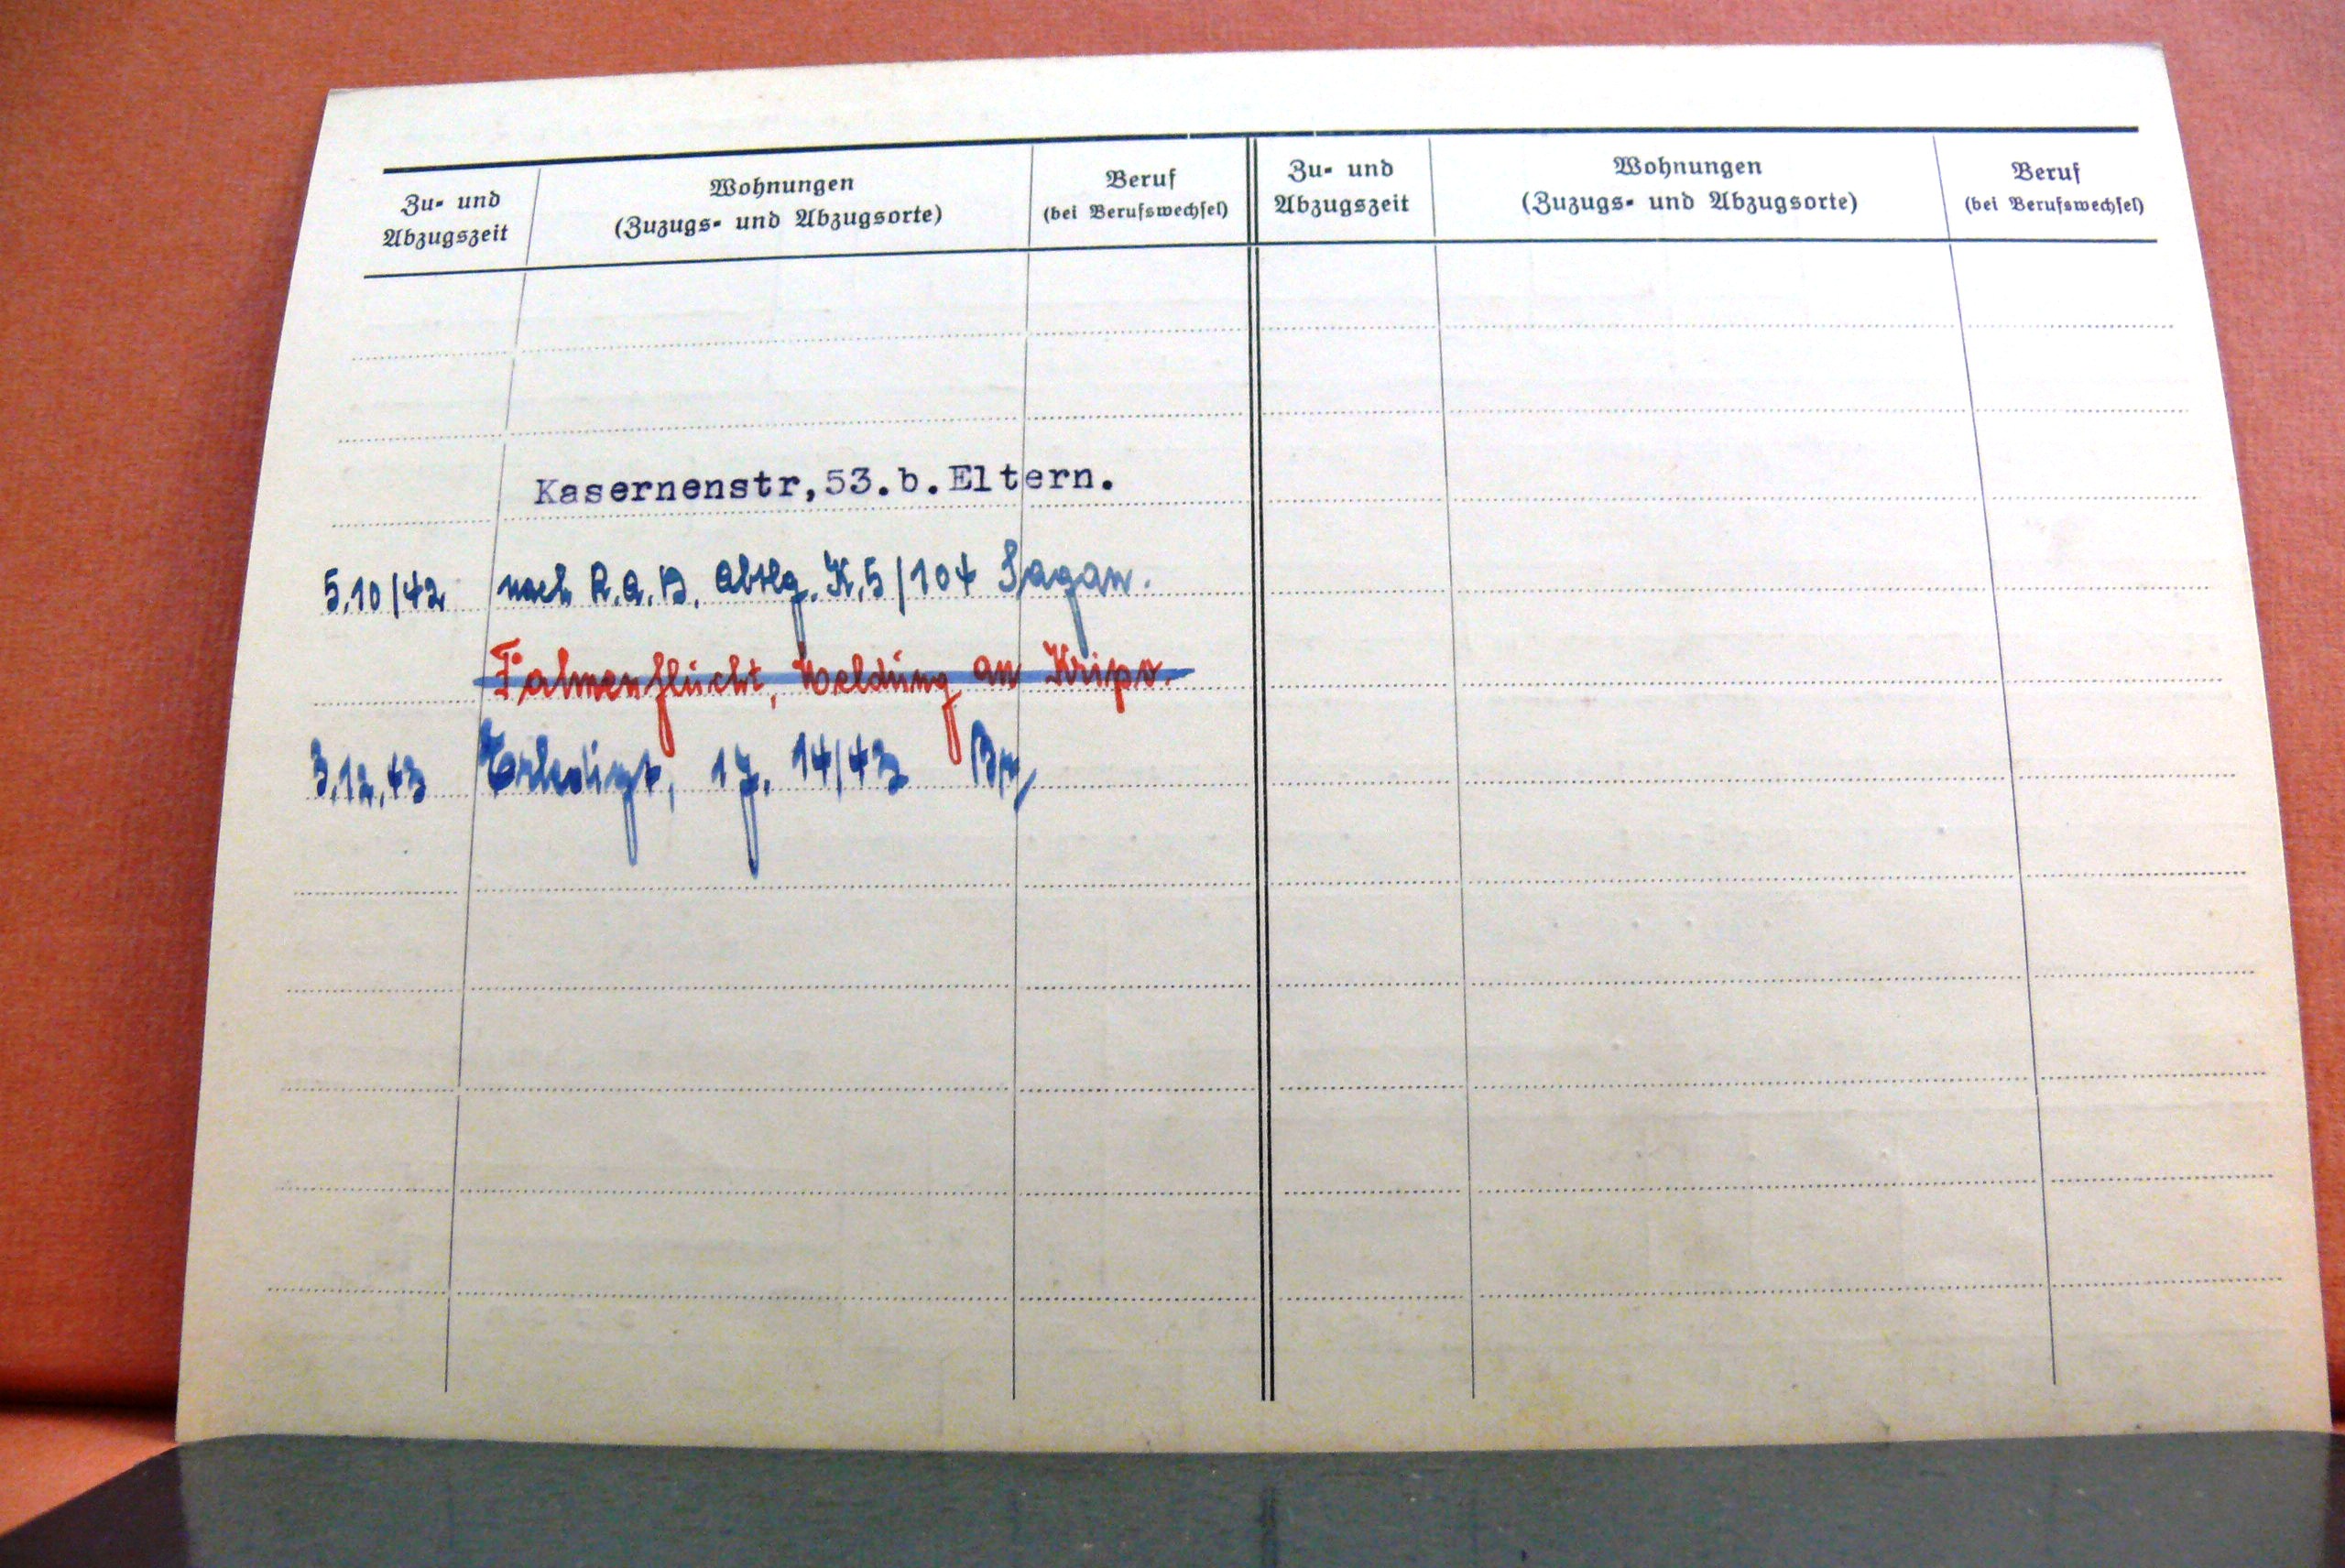 Zu- und Abzugszeit
Wohnungen (Zuzugs- und Abzugsorte)
Beruf (bei Berufswechsel)
Zu- und Abzugszeit
Wohnungen (Zuzugs- und Abzugsorte)
Beruf (bei Berufswechsel)
Kasernenstr,53.b.Eltern.
5.10/42 nach R.A.D. Abtlg. K.5/104 Sagan.
Fahnenflucht, Meldung an Kripo.
3.12.43 Erledigt, 14/43